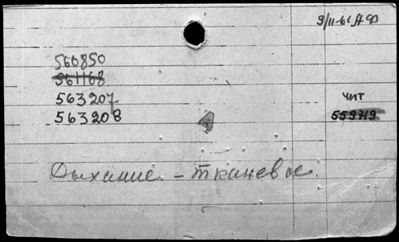 9/II-61
560850
561168
563207 чит
563208 559719
Дыхание - тканевое.